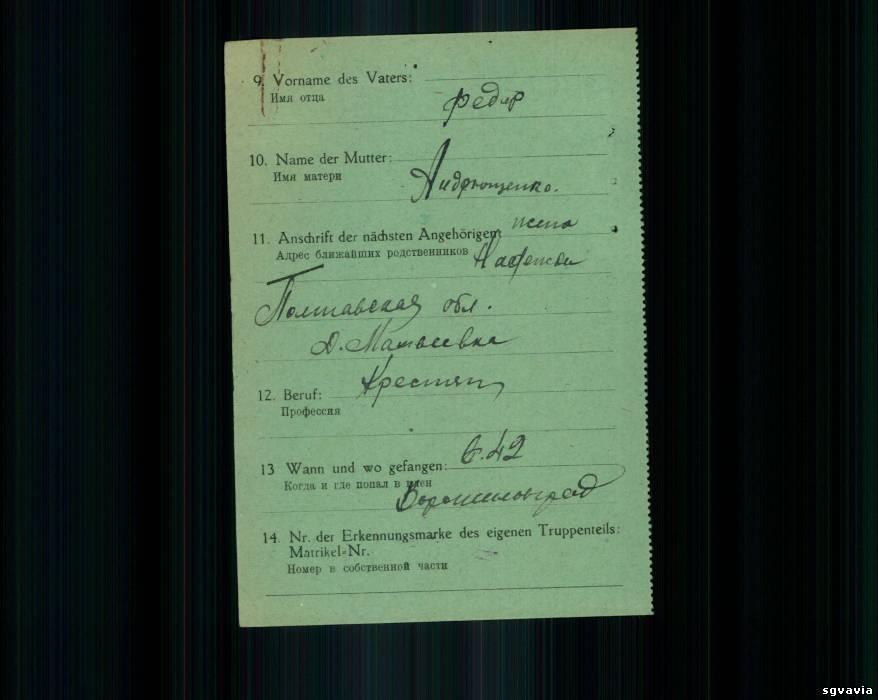 9. Vorname des Vaters:
Имя отца
Федор
10. Name der Mutter:
Имя матери
Андрющенко.
11. Anschrift der nächsten Angehörigen: жена
Адрес ближайших родственников
Полтавская обл.
д. Матвеевка
12. Beruf:
Профессия
Крестян
13 Wann und wo gefangen: 6.42
Когда и где попал в плен
Ворошиловград
14. Nr. der Erkennungsmarke des eigenen Truppenteils:
Matrikel-Nr.
Номер в собственной части
sgvavia